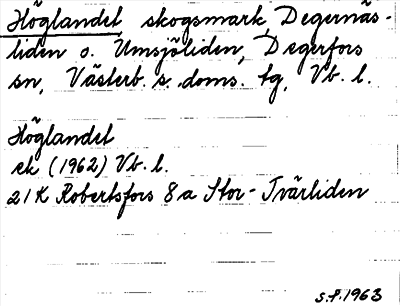 Höglandet, skogsmark, Degernäs-
liden o. Umsjöliden, Degerfors
sn, Västerb. s. doms. tg, Vb. l.
Höglandet
ek (1962) Vb. l.
21K Robertsfors 8a Stor-Tvärliden
S.F. 1963